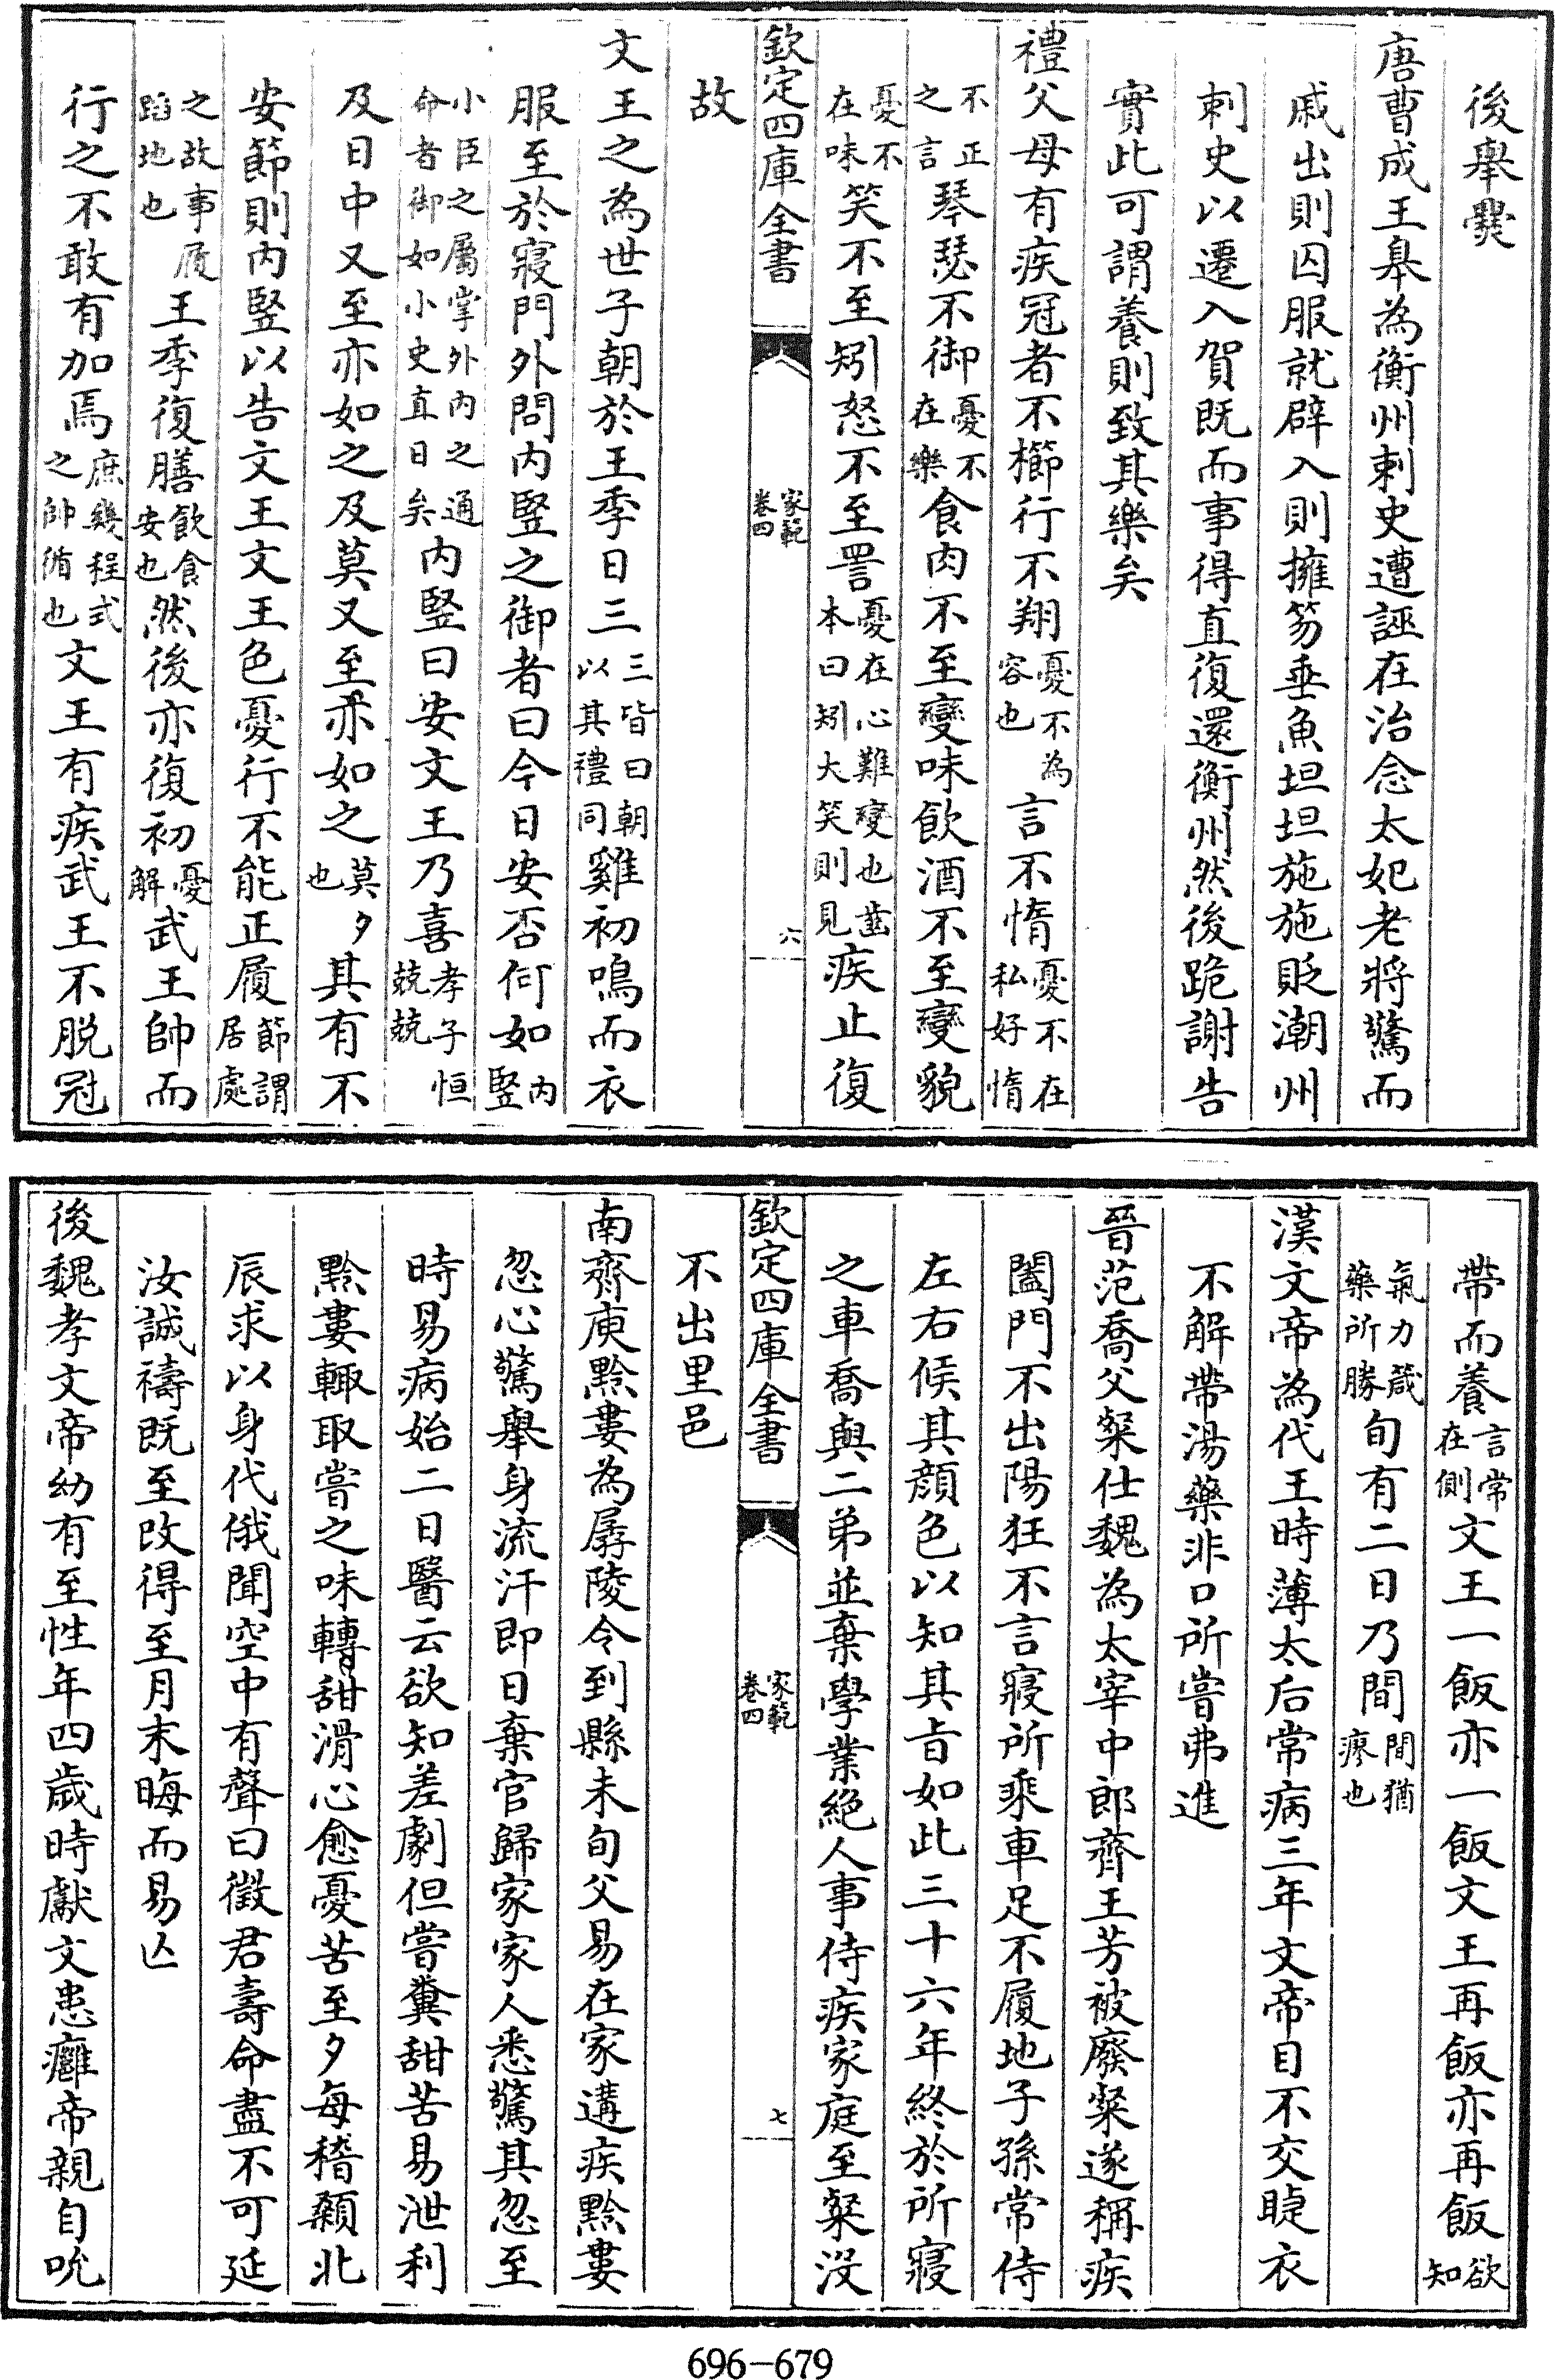 後舉爨
唐曹成王臯為衡州刺史遭誣在治念太妃老將驚而
戚出則囚服就辟入則擁笏垂魚坦坦施施貶潮州
刺史以遷入賀既而事得直復還衡州然後跪謝告
實此可謂養則致其樂矣
禮父母有疾冠者不櫛行不翔憂不為容也言不惰憂不在私好惰
不正之言琴瑟不御憂不在樂食肉不至變味飲酒不至變貌
憂不在味笑不至矧怒不至詈憂在心難變也齒本曰矧大笑則見疾止復
欽定四庫全書
家範
卷四
六
故
文王之為世子朝於王季日三三皆曰朝以其禮同雞初鳴而衣
服至於寢門外問内竪之御者曰今日安否何如内竪
小臣之屬掌外内之通命者御如小史直日矣内竪曰安文王乃喜孝子恒兢兢
及日中又至亦如之及莫又至亦如之莫夕也其有不
安節則内竪以告文王文王色憂行不能正履節謂居處
之故事履蹈地也王季復膳飲食安也然後亦復初憂解武王帥而
行之不敢有加焉庶幾程式之帥循也文王有疾武王不脱冠
帶而養言常在側文王一飯亦一飯文王再飯亦再飯欲知
氣力箴藥所勝旬有二日乃間間猶瘳也
漢文帝為代王時薄太后常病三年文帝目不交睫衣
不解帶湯藥非口所嘗弗進
晉范喬父粲仕魏為太宰中郎齊王芳被廢粲遂稱疾
闔門不出陽狂不言寢所乘車足不履地子孫常侍
左右候其顔色以知其旨如此三十六年終於所寢
之車喬與二弟並棄學業絶人事侍疾家庭至粲没
欽定四庫全書
家範
卷四
七
不出里邑
南齊庾黔婁為孱陵令到縣未旬父易在家遘疾黔婁
忽心驚舉身流汗即日棄官歸家家人悉驚其忽至
時易病始二日醫云欲知差劇但嘗糞甜苦易泄利
黔婁輒取嘗之味轉甜滑心愈憂苦至夕每稽顙北
辰求以身代俄聞空中有聲曰徵君壽命盡不可延
汝誠禱既至改得至月末晦而易亡
後魏孝文帝幼有至性年四歲時獻文患癰帝親自吮
696-679